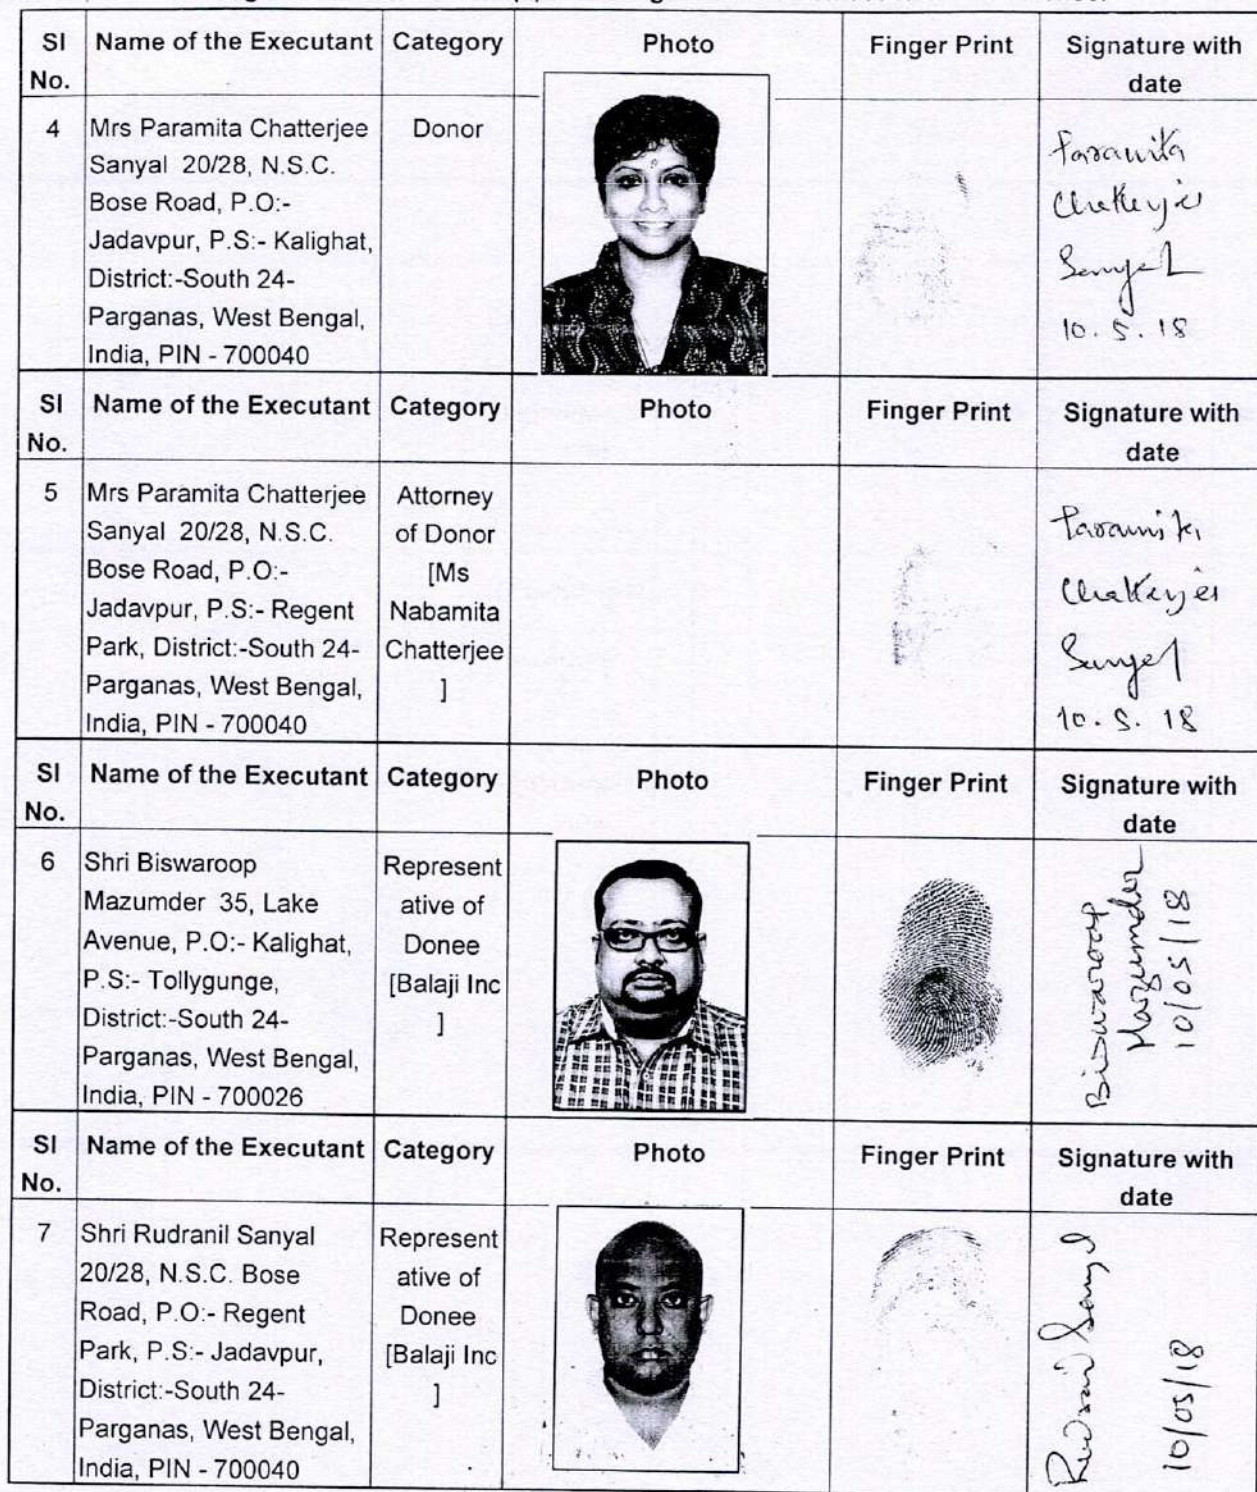 SI No. Name of the Executant Category Photo Finger Print Signature with date
4 Mrs Paramita Chatterjee Donor
Sanyal 20/28, N.S.C.
Bose Road, P.O:-
Jadavpur, P.S:- Kalighat,
District:-South 24-
Parganas, West Bengal,
India, PIN - 700040
Paramita
Chatterjee
Sanyal
10.5.18
SI No. Name of the Executant Category Photo Finger Print Signature with date
5 Mrs Paramita Chatterjee
Sanyal 20/28, N.S.C.
Bose Road, P.O:-
Jadavpur, P.S:- Regent
Park, District:-South 24-
Parganas, West Bengal,
India, PIN - 700040
Attorney
of Donor
[Ms
Nabamita
Chatterjee
]
Paramita
Chatterjee
Sanyal
10.5.18
SI No. Name of the Executant Category Photo Finger Print Signature with date
6 Shri Biswaroop
Mazumder 35, Lake
Avenue, P.O:- Kalighat,
P.S:- Tollygunge,
District:-South 24-
Parganas, West Bengal,
India, PIN - 700026
Represent
ative of
Donee
[Balaji Inc
]
Biswaroop
Mazumder
10/05/18
SI No. Name of the Executant Category Photo Finger Print Signature with date
7 Shri Rudranil Sanyal
20/28, N.S.C. Bose
Road, P.O:- Regent
Park, P.S:- Jadavpur,
District:-South 24-
Parganas, West Bengal,
India, PIN - 700040
Represent
ative of
Donee
[Balaji Inc
]
Rudranil Sanyal
10/05/18